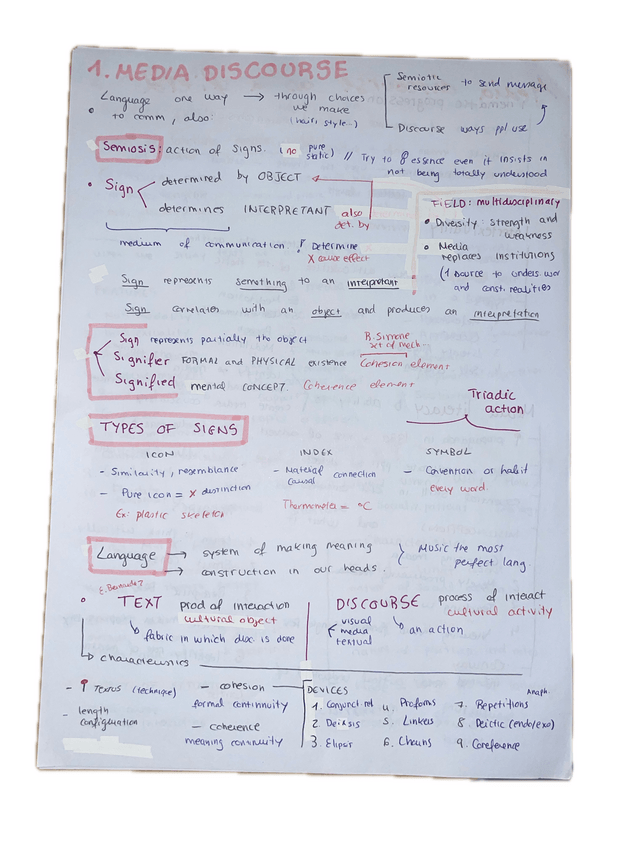 1. MEDIA DISCOURSE
Language one way → through choices
to comm, also: we make
(hair, style...)
Semiotic to send message
resources
Discourse ways ppl use
Semiosis: action of signs. (no pure static) // Try to essence even it insists in
not being totally understood
• Sign determined by OBJECT
determines INTERPRETANT also
det. by
medium of communication Determine
X cause effect
FIELD: multidisciplinary
• Diversity: strength and
weakness
• Media
replaces institutions
(1 source to unders. wor
and const. realities)
Sign represents something to an interpretant
Sign correlates with an object and produces an interpretation
Sign represents partially the object
Signifier FORMAL and PHYSICAL existence Cohesion element
R. Simone
set of mech...
Signified mental CONCEPT. Coherence element
Triadic
action
TYPES OF SIGNS
ICON
- Similarity, resemblance
- Pure icon = X distinction
Ex: plastic skeleton
INDEX
- Material connection
causal
Thermometer = °C
SYMBOL
- Convention or habit
every word.
Language → system of making meaning
→ construction in our heads.
Music the most
perfect lang.
• TEXT prod of interaction
cultural object
fabric in which disc is done
DISCOURSE process of interact
cultural activity
visual
media
textual
an action
characteristics
- Textus (technique)
- length
configuration
- cohesion
formal continuity
- coherence
meaning continuity
DEVICES
1. Conjunct. rel
2. Deixsis
3. Elipsis
4. Proforms
5. Linkers
6. Chains
Anaph.
7. Repetitions
8. Deictic (endo/exo)
9. Coreference